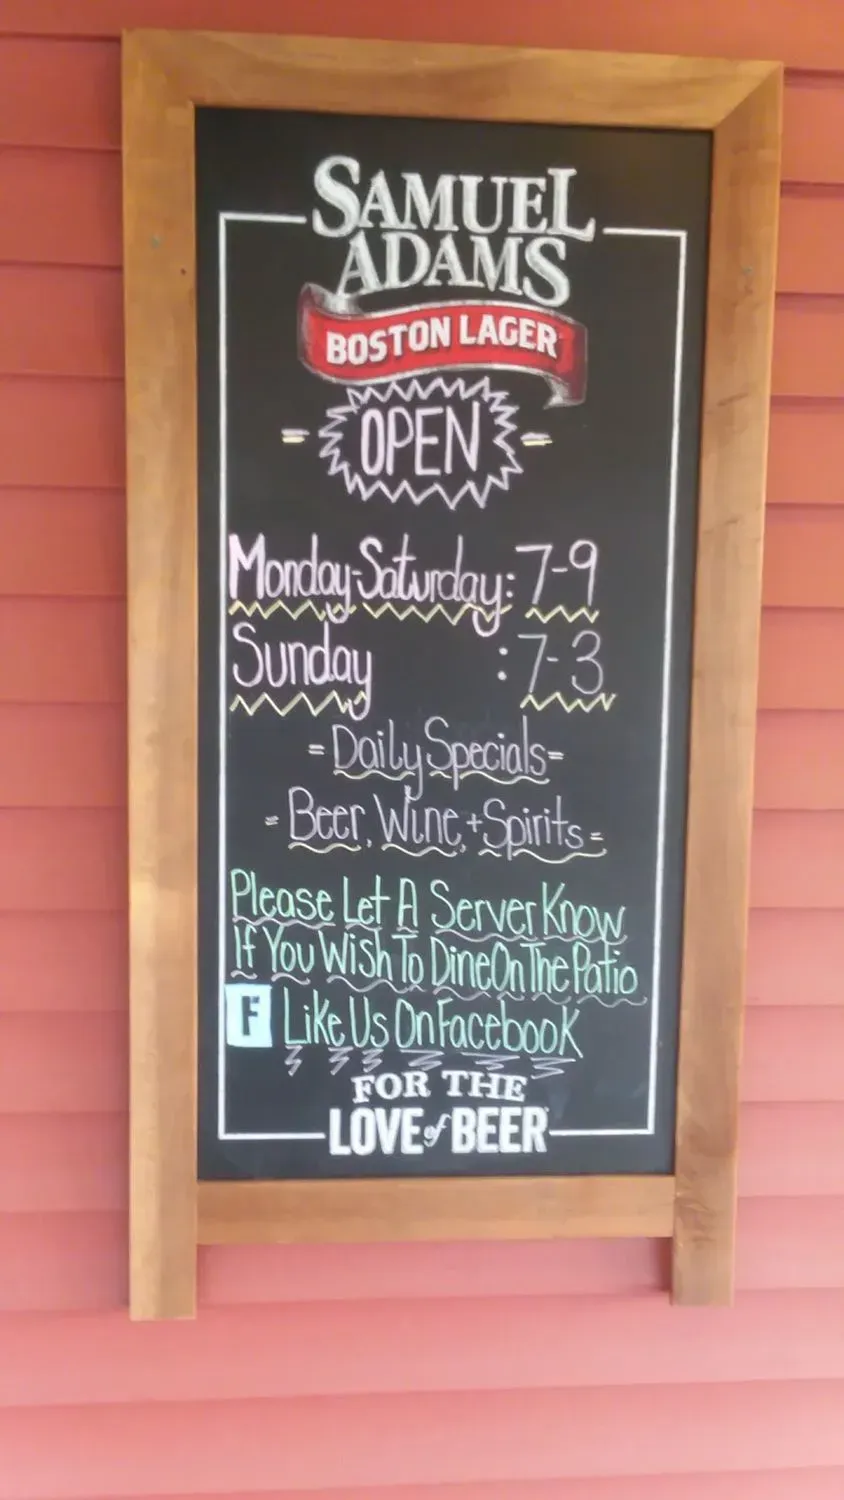 SAMUEL
ADAMS
BOSTON LAGER
= OPEN =
Monday-Saturday: 7-9
Sunday : 7-3
= Daily Specials =
= Beer, Wine, + Spirits =
Please Let A Server Know
If You Wish To Dine On The Patio
F Like Us On Facebook
FOR THE
LOVE of BEER